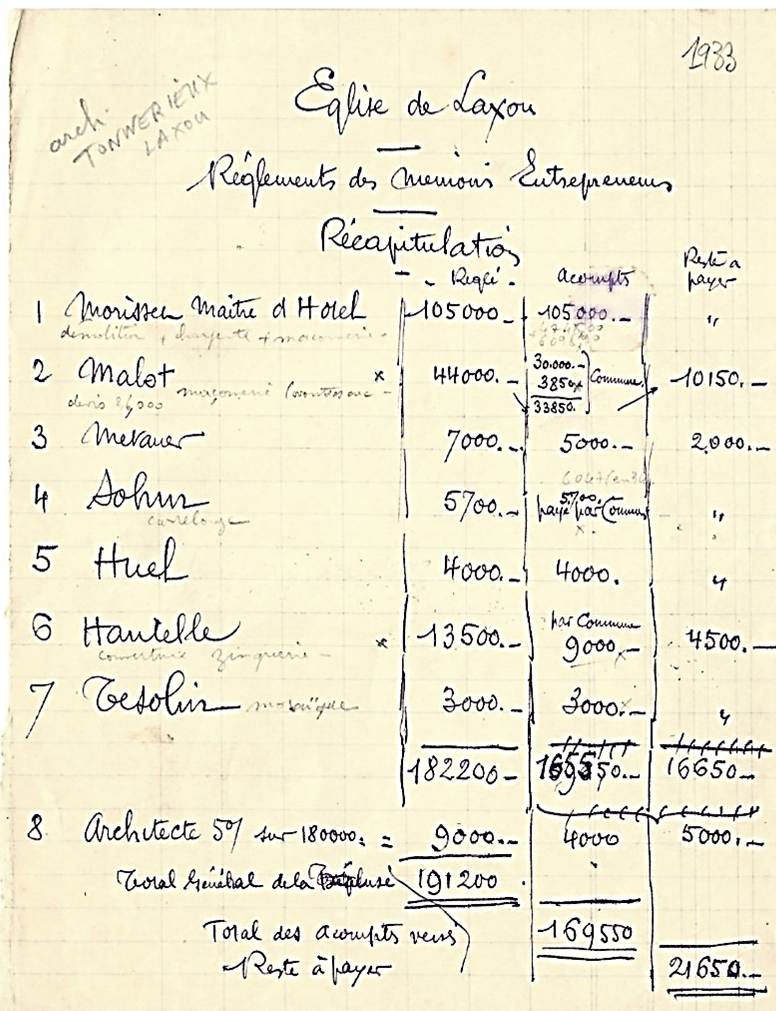 1933
arch.
TONNERIEUX
LAXOU
Eglise de Laxou
Réglements des Memoirs Entrepreneurs
Récapitulation
Reglé. Acompts Reste a payer
1 Morisseu Maitre d Hotel 105000.- 105000.- "
demolition, charpente + maconnerie
2 Malot x 44000.- 30.000.- 3850x 33850. Commune 10150.-
devis 26,000 maçonnerie
3 Metauer 7000.- 5000.- 2.000.-
4 Sohur 5700.- 5.700. payé par Commune "
carrelage
5 Huel 4000.- 4000. "
6 Hantelle x 13500.- par Commune 9000.- 4500.-
couverture zinguerie
7 Tesolin mosaïque 3000.- 3000.- "
182200- 165550.- 16650.-
8 Architecte 5% sur 180000. = 9000.- 4000 5000.-
Total Général de la 191200
Total des acompts versés 169550
Reste à payer 21650.-